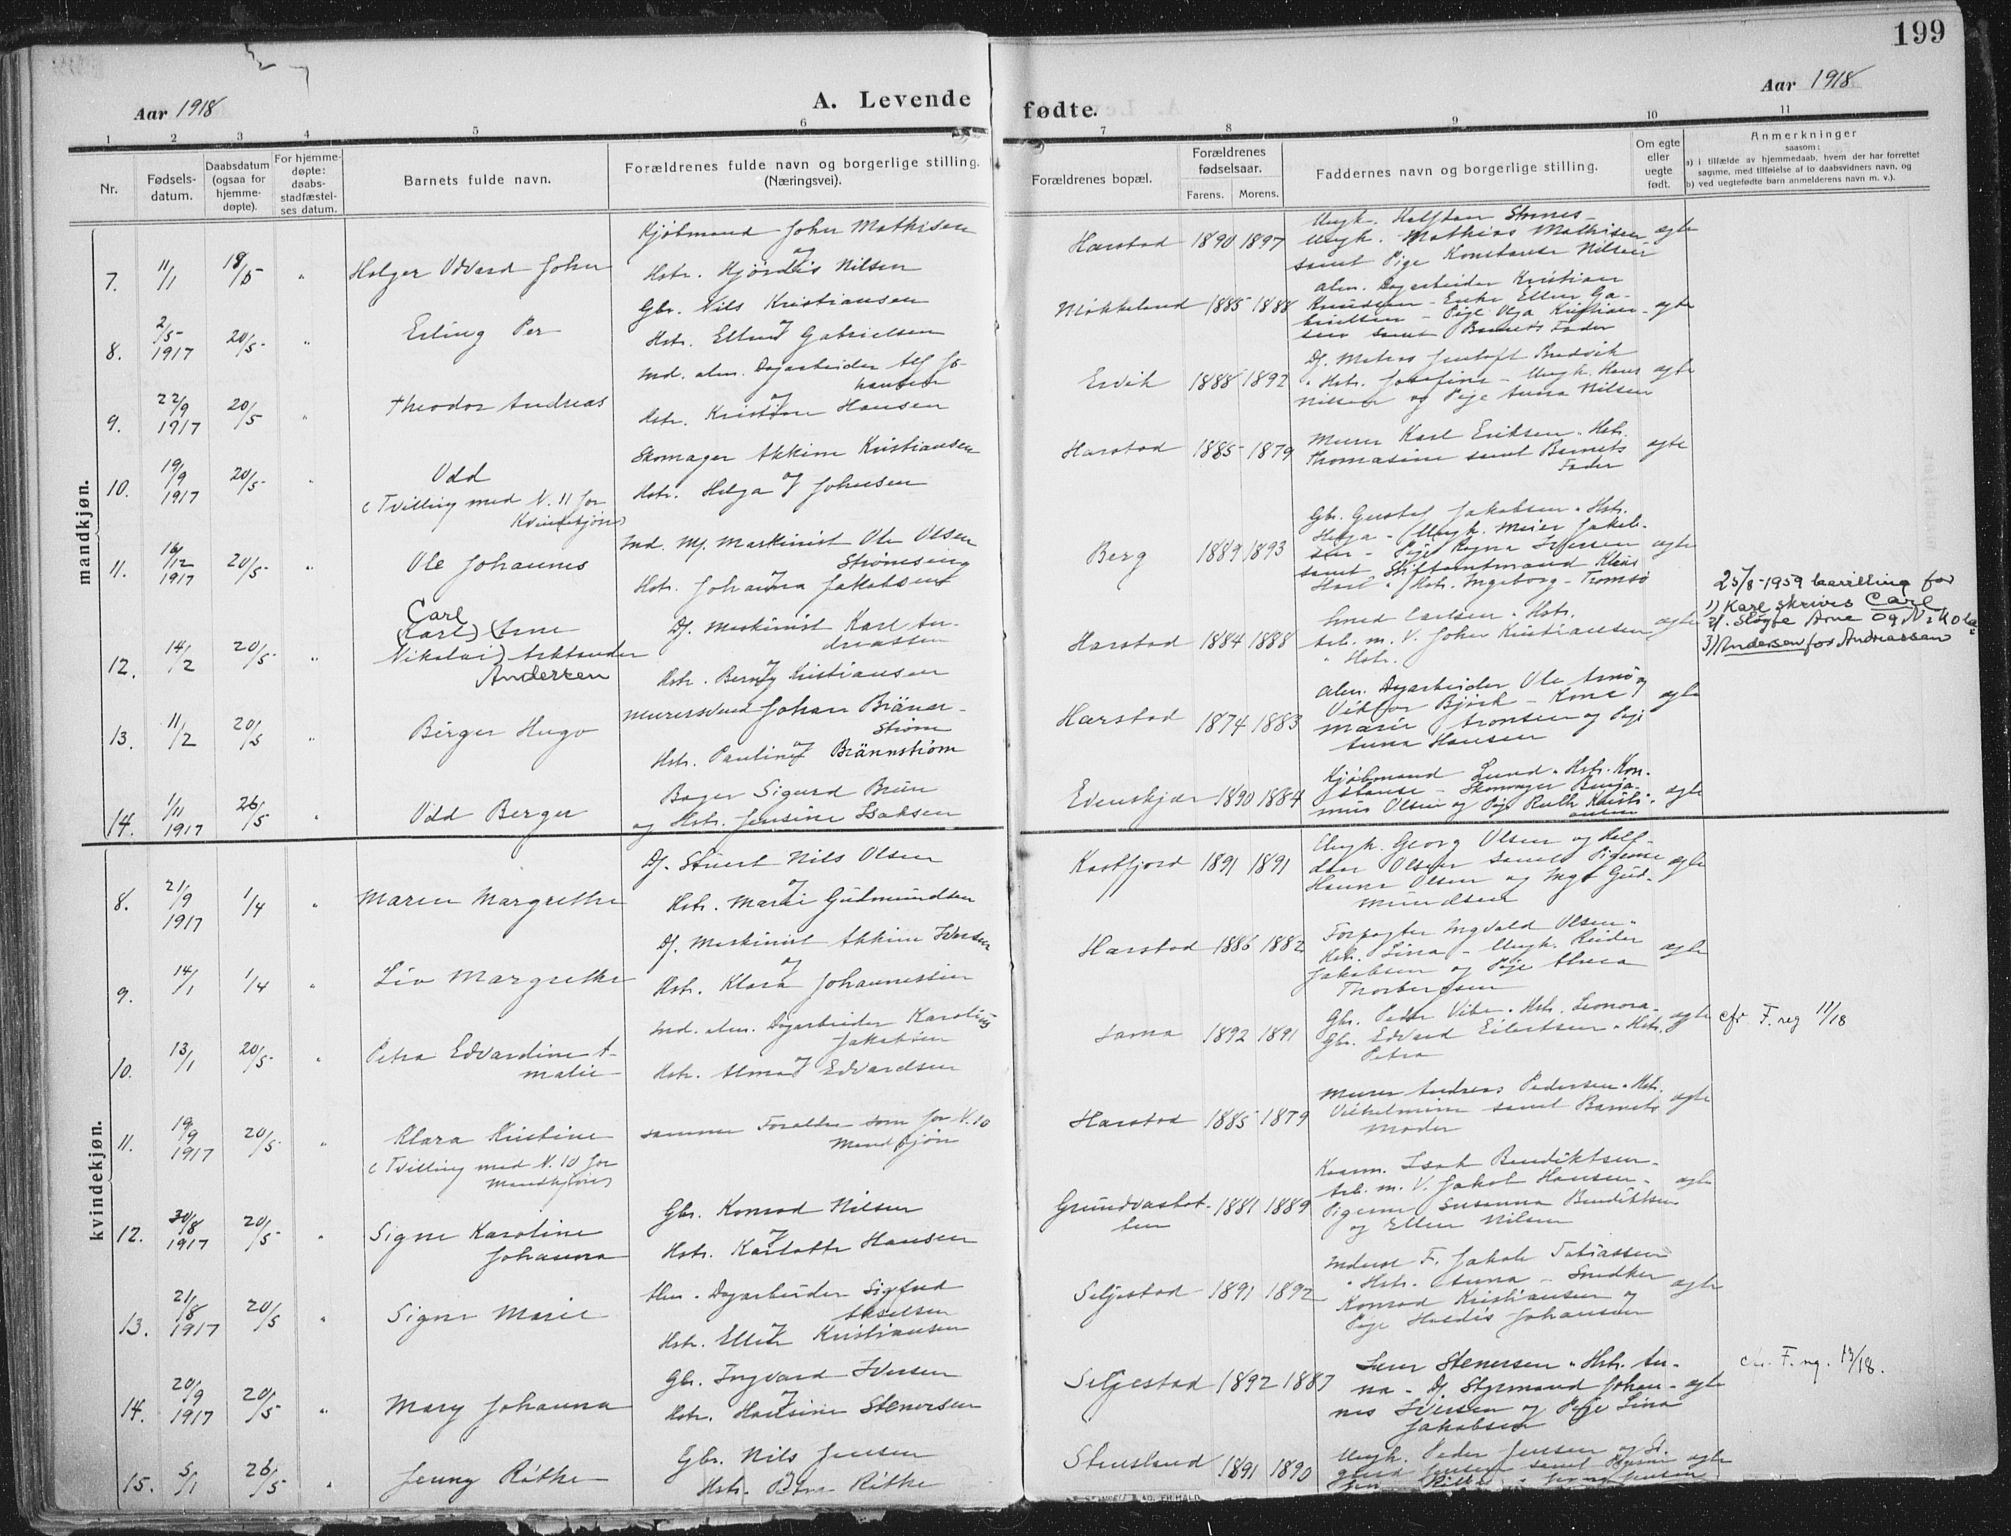 199
Aar 1918
A. Levende
fødte.
Aar 1918
1 2 3 4 5 6 7 8 9 10 11
Nr.
Fødsels-
datum.
Daabsdatum
(ogsaa for
hjemme-
døpte).
For hjemme-
døpte:
daabs-
stadfæstel-
ses datum.
Barnets fulde navn.
Forældrenes fulde navn og borgerlige stilling.
(Næringsvei).
Forældrenes bopæl.
Forældrenes
fødselsaar.
Farens. Morens.
Faddernes navn og borgerlige stilling.
Om egte
eller
uegte
født.
Anmerkninger
saasom:
a) i tilfælde av hjemmedaab, hvem der har forrettet
sagme, med tilføielse af to daabsvidners navn, og
b) ved uegtefødte barn anmelderens navn m. v.).
mandkjøn.
7. 11/1 " Holger Edvard John
Kjøbmand John Mathisen
og
Hstr. Hjørdis Nilsen
Harstad 1890 1897
Ungk. Halfdan
Ungk. Mathias Mathisen
samt Pige Konstanse Nilsen
egte
8. 2/5 1917 20/5 " Erling Per
Gbr. Nils Kristiansen
og
Hstr. Ellen Gabrielsen
Møkkeland 1885 1888
alm. Dagarbeider Kristian
Knudsen - Enke Ellen Ga-
brielsen - Pige Olga Kristian-
sen samt Barnets Fader
egte
9. 22/9 1917 20/5 " Theodor Andreas
Ind. alm. Dagarbeider Alf Jo-
hansen
og
Hstr. Kristine Hansen
Ervik 1888 1892
Df. Matros Bredvik
" Hstr. Josefine - Ungk. Hans
Nilsen og Pige Anna Nilsen
egte
10. 19/9 1917 20/5 " Odd
(Tvilling med N. 11 for
Kvindekjøn)
Skomager Akkim Kristiansen
og
Hstr. Helga Johnsen
Harstad 1885 1879
Murer Karl Eriksen " Hstr.
Thomasine samt Barnets
Fader
egte
11. 16/12 1917 20/5 " Ole Johannes
Ind. Mf. Maskinist Ole Olsen
Strømseng
Hstr. Johanna Jakobsen
Berg 1889 1893
Gbr. Gustaf Jakobsen " Hstr.
Helga - Ungk. Meier Jakob-
sen - Pige Ragna Iversen
samt Stiftamtmand Klaus
" Hstr. Ingeborg - Tromsø
egte
12. 14/2 20/5 " Carl
(Karl) (Arne
Nikolai)
Andersen
Df. Maskinist Karl An-
dreassen
og
Hstr. Berny Kristiansen
Harstad 1884 1888
Smed Carlsen " Hstr.
Arb. m. V. Johan Kristiansen
" Hstr.
egte
25/8-1959 bevilling for
1) Karl skrives Carl
2) Sløyfe Arne og Nikolai
3) Andersen for Andreassen
13. 11/2 20/5 " Birger Hugo
Murersvend Johan Bränn-
strøm
og
Hstr. Pauline Brännstrøm
Harstad 1874 1883
alm. Dagarbeider Ole Arnø og
Viktor Bjørk - Kone
Marie Aronsen og Pige
Anna Hansen
egte
14. 1/11 1917 26/5 " Odd Berger
Bager Sigurd Brun
og Hstr. Jensine Isaksen
Evenskjær 1890 1884
Kjøbmand Lund " Hstr. Kon-
stanse - Skomager Benja-
min Olsen og Pige Ruth Kristi-
ansen
egte
kvindekjøn.
8. 21/9 1917 1/4 " Maren Margrethe
Df. Stuert Nils Olsen
og
Hstr. Marie Gudmundsen
Kastfjord 1891 1891
Ungk. Georg Olsen og Half-
dan Olsen samt Pigerne
Hanna Olsen og Inga Gud-
mundsen
egte
9. 14/1 1/4 " Liv Margrethe
Df. Maskinist Akkim Iversen
og
Hstr. Klara Johannessen
Harstad 1886 1882
Forpagter Ingvald Olsen "
Hstr. Lina - Ungk. Reidar
Jakobsen og Pige
Thorbergsen
egte
10. 13/1 20/5 " Petra Edvardine A-
malie
Ind. alm. Dagarbeider Karolius
Jakobsen
og
Hstr. Alma Edvardsen
Sama 1892 1891
Gbr. Peder Vibe " Hstr. Leonora -
Gbr. Edvard Eilertsen " Hstr.
Petra
egte
cfr F. reg 11/18
11. 19/9 1917 20/5 " Klara Kristine
(Tvilling med N. 10 for
Mandkjøn)
samme Forældre som for N. 10
Mandkjøn
Harstad 1885 1879
Murer Andreas Pedersen " Hstr.
Vilhelmine samt Barnets
Moder
egte
12. 30/8 1917 20/5 " Signe Karoline
Johanna
Gbr. Konrad Nilsen
og
Hstr. Karlotte Hansen
Grundvasbot-
ten
1881 1889
Isak Bendiktsen -
Arb. m. V. Jakob Hansen -
Pigerne Susanna Bendiktsen
og Ellen Nilsen
egte
13. 21/8 1917 20/5 " Signe Marie
Alm. Dagarbeider Sigfred
Akselsen
og
Hstr. Ellen Kristiansen
Seljestad 1891 1892
Inderst F. Jakob Tobiassen
" Hstr. Anna - Snedker
Konrad Kristiansen og
Pige Haldis Johansen
egte
14. 20/9 1917 20/5 " Mary Johanna
Gbr. Ingvard Iversen
og
Hstr. Hansine Stenersen
Seljestad 1892 1887
Stenersen " Hstr. An-
na - Df. Styrmand Johan-
nes Iversen og Pige Lina
Jakobsen
egte
cfr. F. reg. 13/18.
15. 5/1 26/5 " Jenny Rikke
Gbr. Nils Jensen
og
Hstr. Petra Rikke
Stensland 1891 1890
Ungk. Peder Jensen og Si-
gurd Jensen samt Pigerne
egte